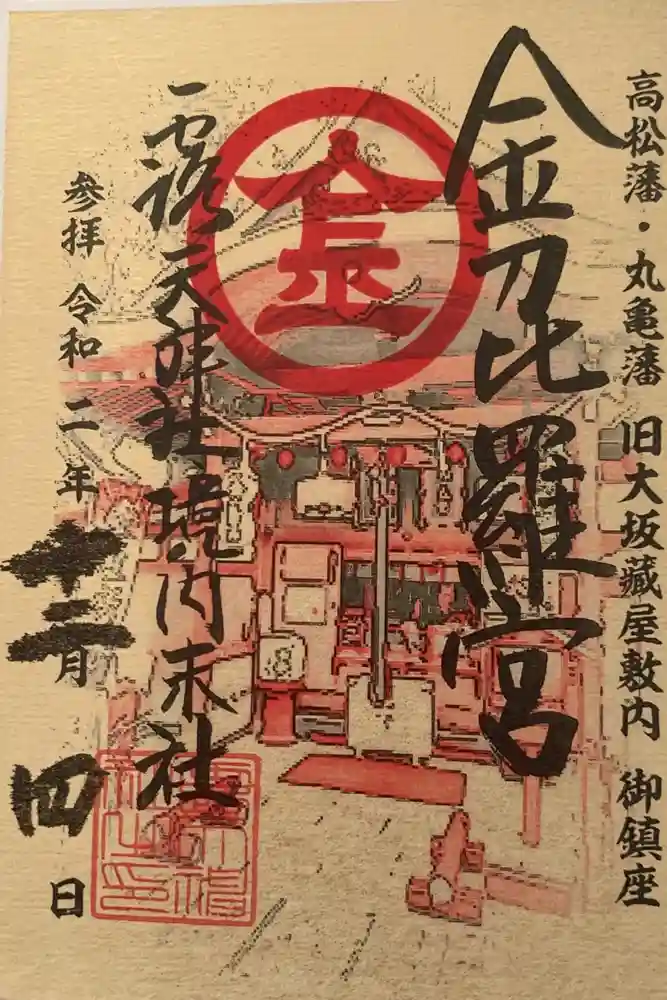 高松藩・丸亀藩 旧大坂蔵屋敷内 御鎮座
金刀比羅宮
金
露天神社境内末社
参拝 令和二年十二月四日